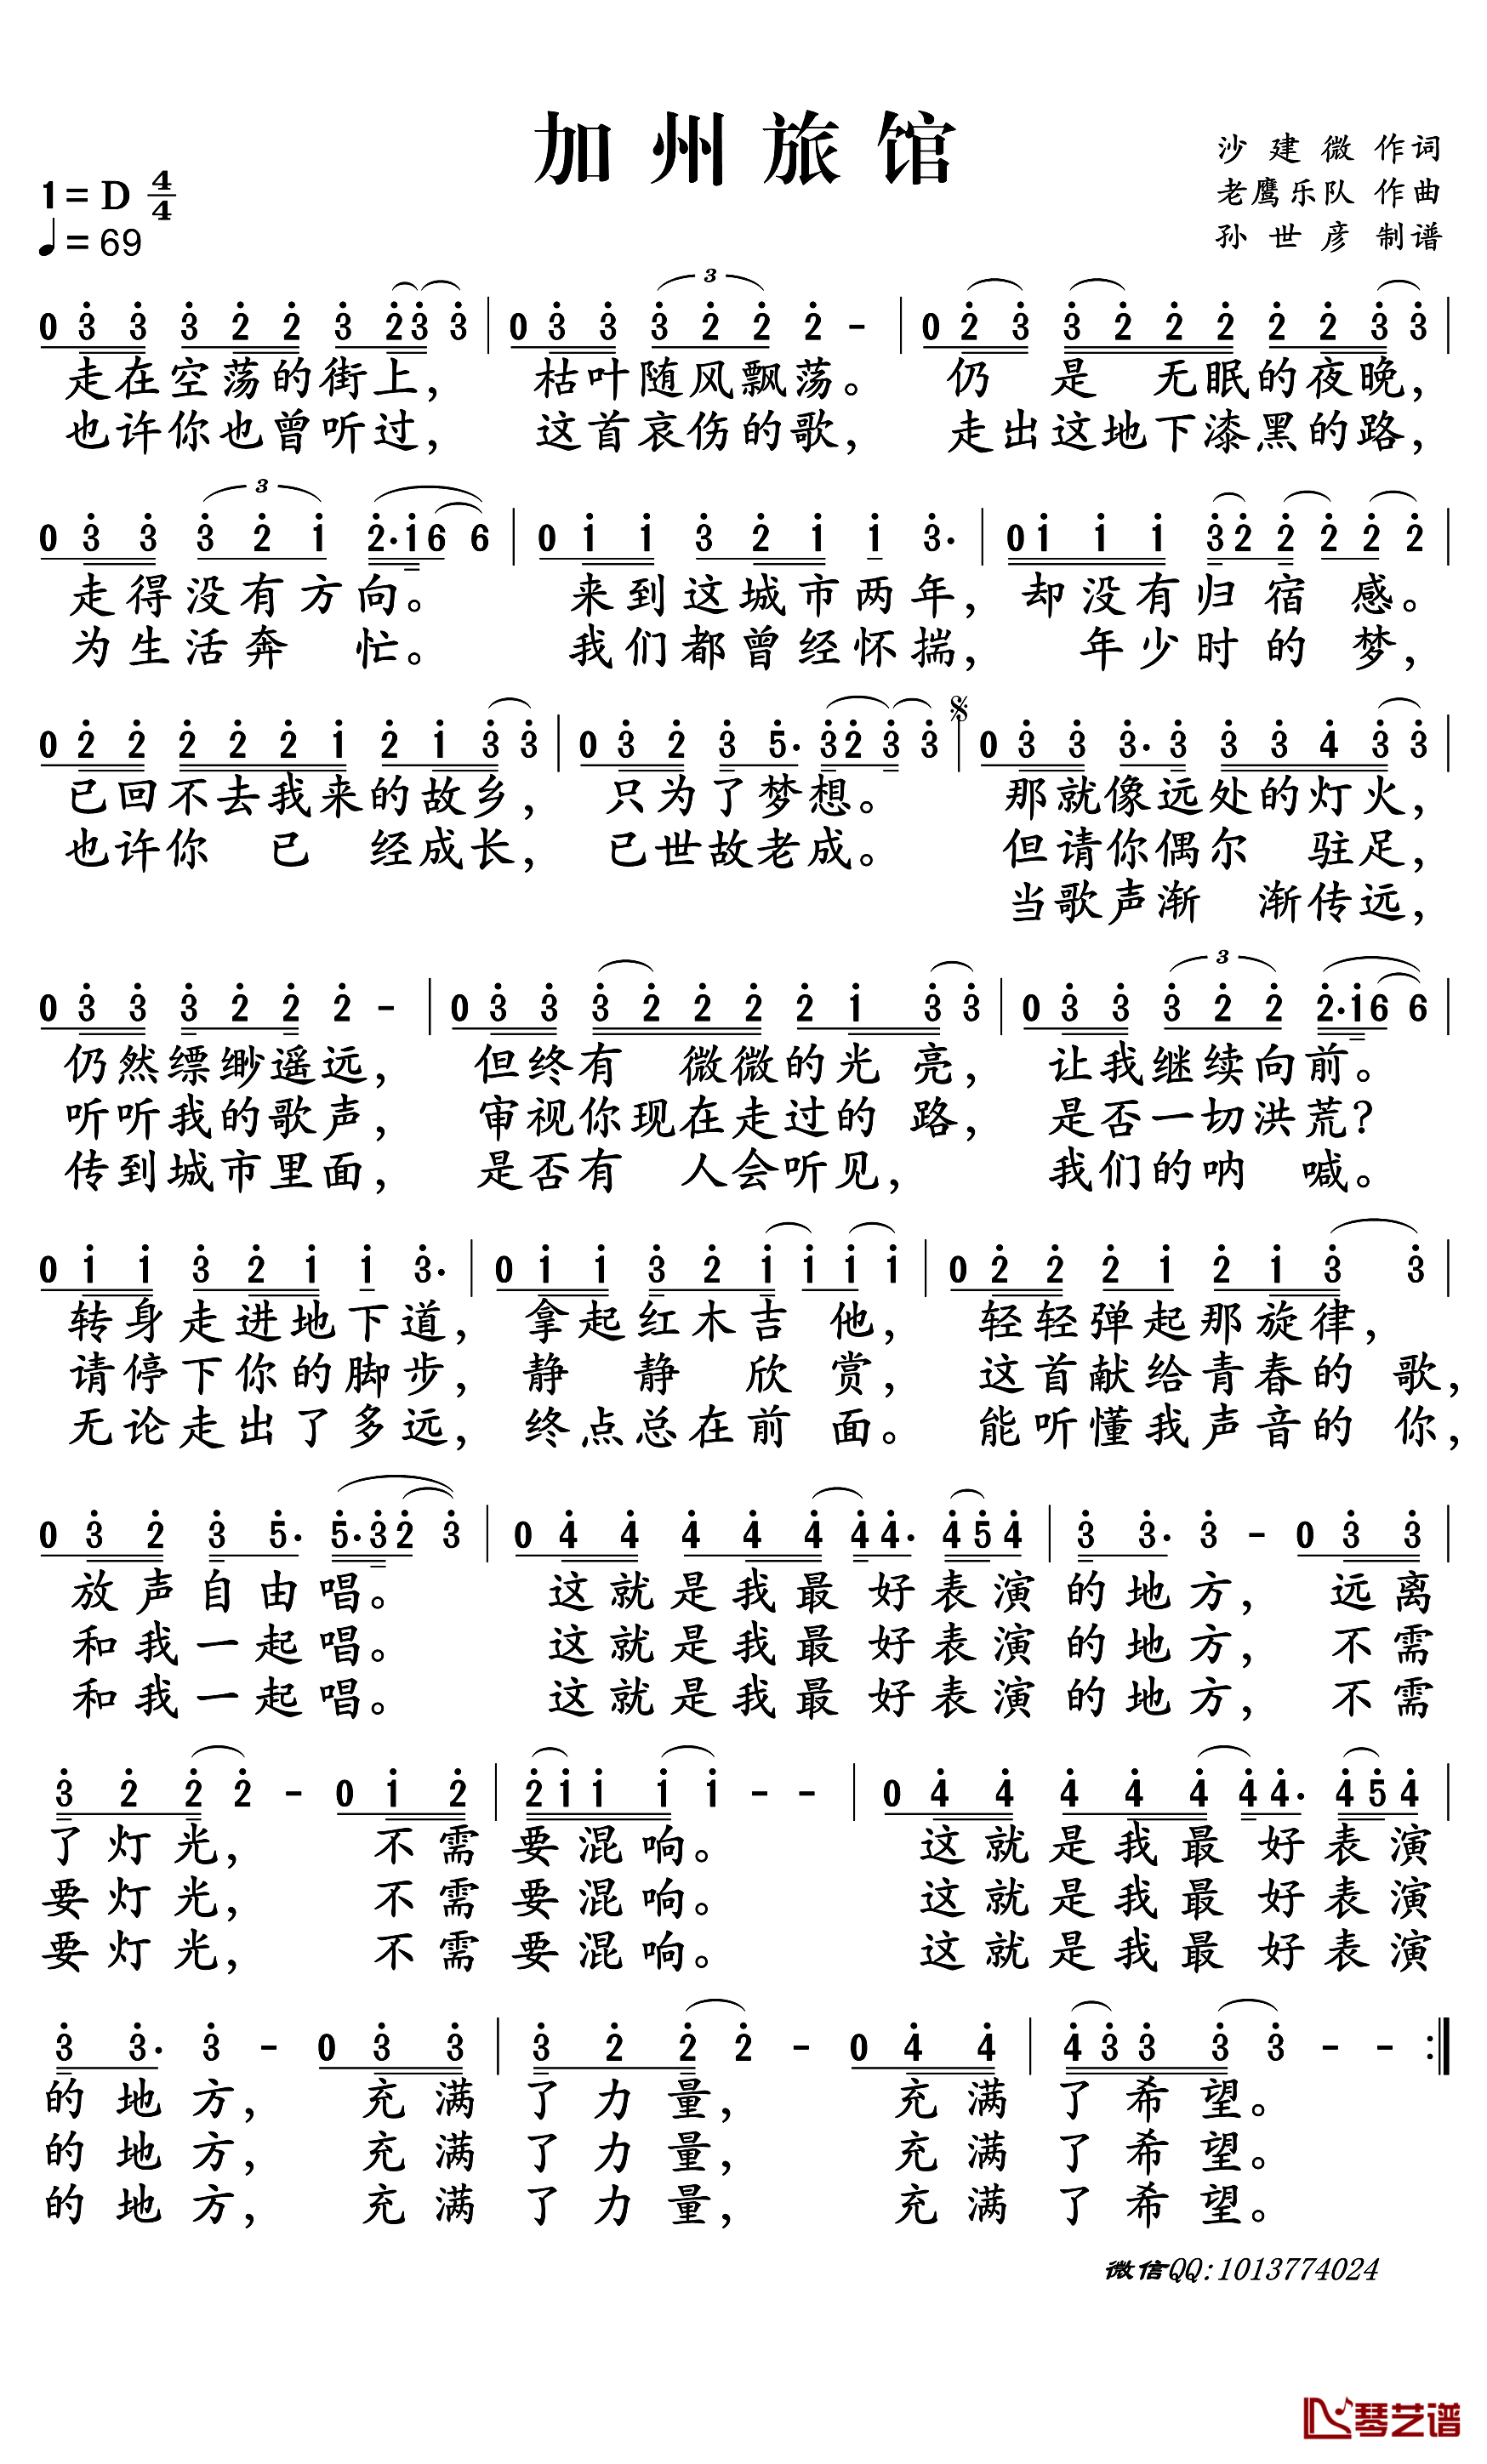 加州旅馆
沙建微 作词
1=D 4/4
老鹰乐队 作曲
♩=69
孙世彦 制谱
0 3 3 3 2 2 3 2 3 3 | 0 3 3 3 2 2 2 - | 0 2 3 3 2 2 2 2 2 3 3 |
走在空荡的街上， 枯叶随风飘荡。 仍是无眠的夜晚，
也许你也曾听过， 这首哀伤的歌， 走出这地下漆黑的路，
0 3 3 3 2 1 2· 1 6 6 | 0 1 1 3 2 1 1 3· | 0 1 1 1 3 2 2 2 2 2 |
走得没有方向。 来到这城市两年， 却没有归宿感。
为生活奔忙。 我们都曾经怀揣， 年少时的梦，
0 2 2 2 2 2 1 2 1 3 3 | 0 3 2 3 5· 3 2 3 3 | 0 3 3 3· 3 3 3 4 3 3 |
已回不去我来的故乡， 只为了梦想。 那就像远处的灯火，
也许你已经成长， 已世故老成。 但请你偶尔驻足，
当歌声渐渐传远，
0 3 3 3 2 2 2 - | 0 3 3 3 2 2 2 2 1 3 3 | 0 3 3 3 2 2 2· 1 6 6 |
仍然缥缈遥远， 但终有微微的光亮， 让我继续向前。
听听我的歌声， 审视你现在走过的路， 是否一切洪荒？
传到城市里面， 是否有人会听见， 我们的呐喊。
0 1 1 3 2 1 1 3· | 0 1 1 3 2 1 1 1 1 | 0 2 2 2 1 2 1 3 3 |
转身走进地下道， 拿起红木吉他， 轻轻弹起那旋律，
请停下你的脚步， 静静欣赏， 这首献给青春的歌，
无论走出了多远， 终点总在前面。 能听懂我声音的你，
0 3 2 3 5· 5· 3 2 3 | 0 4 4 4 4 4 4 4· 4 5 4 | 3 3· 3 - 0 3 3 |
放声自由唱。 这就是我最好表演 的地方， 远离
和我一起唱。 这就是我最好表演 的地方， 不需
和我一起唱。 这就是我最好表演 的地方， 不需
3 2 2 2 - 0 1 2 | 2 1 1 1 1 - - | 0 4 4 4 4 4 4 4· 4 5 4 |
了灯光， 不需要混响。 这就是我最好表演
要灯光， 不需要混响。 这就是我最好表演
要灯光， 不需要混响。 这就是我最好表演
3 3· 3 - 0 3 3 | 3 2 2 2 - 0 4 4 | 4 3 3 3 3 - - :|
的地方， 充满了力量， 充满了希望。
的地方， 充满了力量， 充满了希望。
的地方， 充满了力量， 充满了希望。
微信QQ:1013774024
琴艺谱